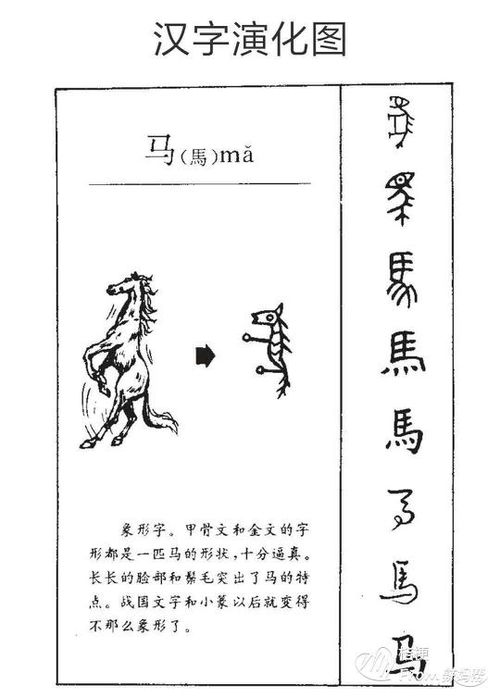 汉字演化图
马(馬)mǎ
象形字。甲骨文和金文的字
形都是一匹马的形状,十分逼真。
长长的脸部和鬃毛突出了马的特
点。战国文字和小篆以后就变得
不那么象形了。
馬
馬
馬
馬
马